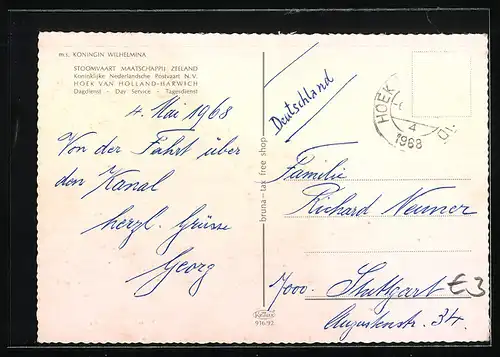 m.s. KONINGIN WILHELMINA
STOOMVAART MAATSCHAPPIJ ZEELAND
Koninklijke Nederlandsche Postvaart N.V.
HOEK VAN HOLLAND-HARWICH
Dagdienst - Day Service - Tagesdienst
4. Mai 1968
Von der Fahrt über
den Kanal
herzl. Grüsse
Georg
bruna - tax free shop
916/92
Deutschland
HOEK
4
1968
Familie
Richard Neuner
7000. Stuttgart
Augustenstr. 34.
€3